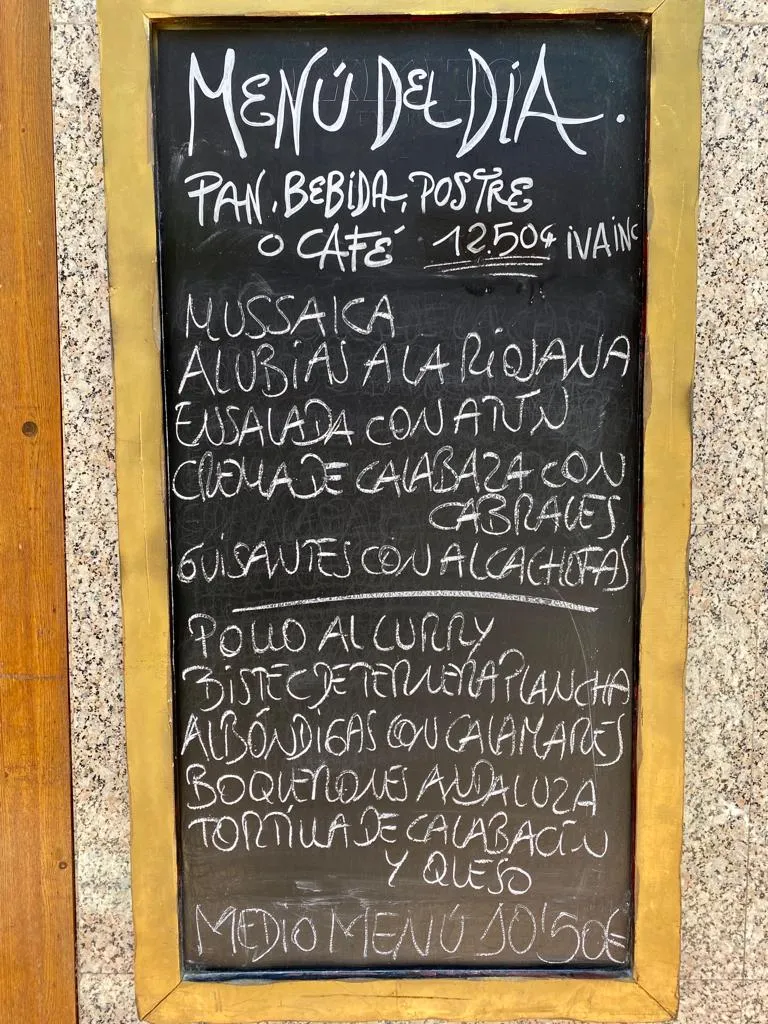 MENÚ DEL DÍA.
PAN, BEBIDA, POSTRE
O CAFÉ 12,50€ IVA INC
MUSSAICA
ALUBIAS A LA RIOJANA
ENSALADA CON ATÚN
CREMA DE CALABAZA CON
CABRALES
GUISANTES CON ALCACHOFAS
POLLO AL CURRY
BISTEC DE TERNERA PLANCHA
ALBÓNDIGAS CON CALAMARES
BOQUERONES ANDALUZA
TORTILLA DE CALABACÍN
Y QUESO
MEDIO MENÚ 10'50€